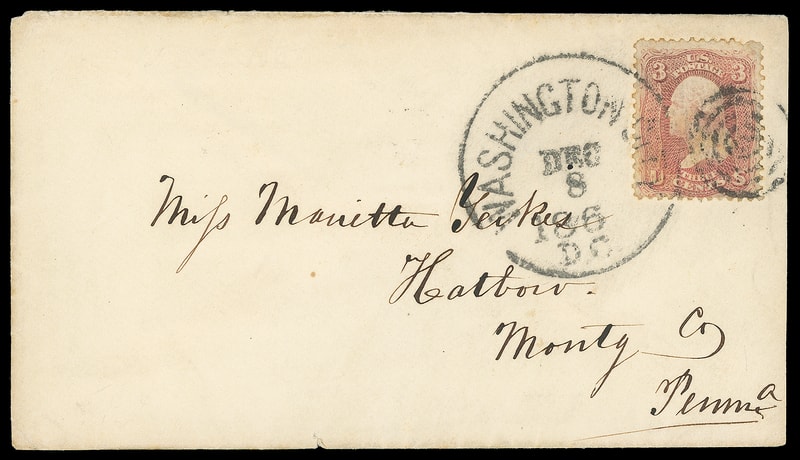 3 U.S. 3
POSTAGE
WASHINGTON
DEC
8
186
D.C.
Miſs Marietta Yerkes
Hatboro.
Montg Co
Penna